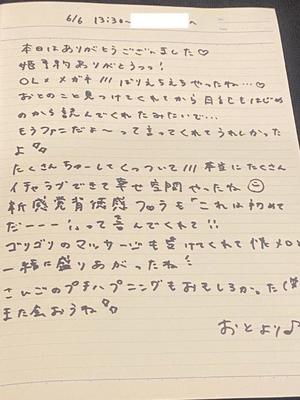 6/6 13:30~
本日はありがとうございました♡
姫予約ありがとうっ!
OL×メガネ///ばりえちえちやったね…♡
おとのこと見つけてくれてから日記もはじめ
のから読んでくれたみたいで…
もうファンだよ〜って言ってくれてうれしかった
よ
たくさんちゅーしてくっついて///本当にたくさん
イチャラブできて幸せ空間やったね☺
新感覚背徳感フェラも「これは初めて
だーーー!」って喜んでくれて!!
ゴリゴリのマッサージも受けてくれて懐メロと
一緒に盛りあがったね!
さいごのプチハプニングもおもしろかった(笑
また会おうね
おとより♪